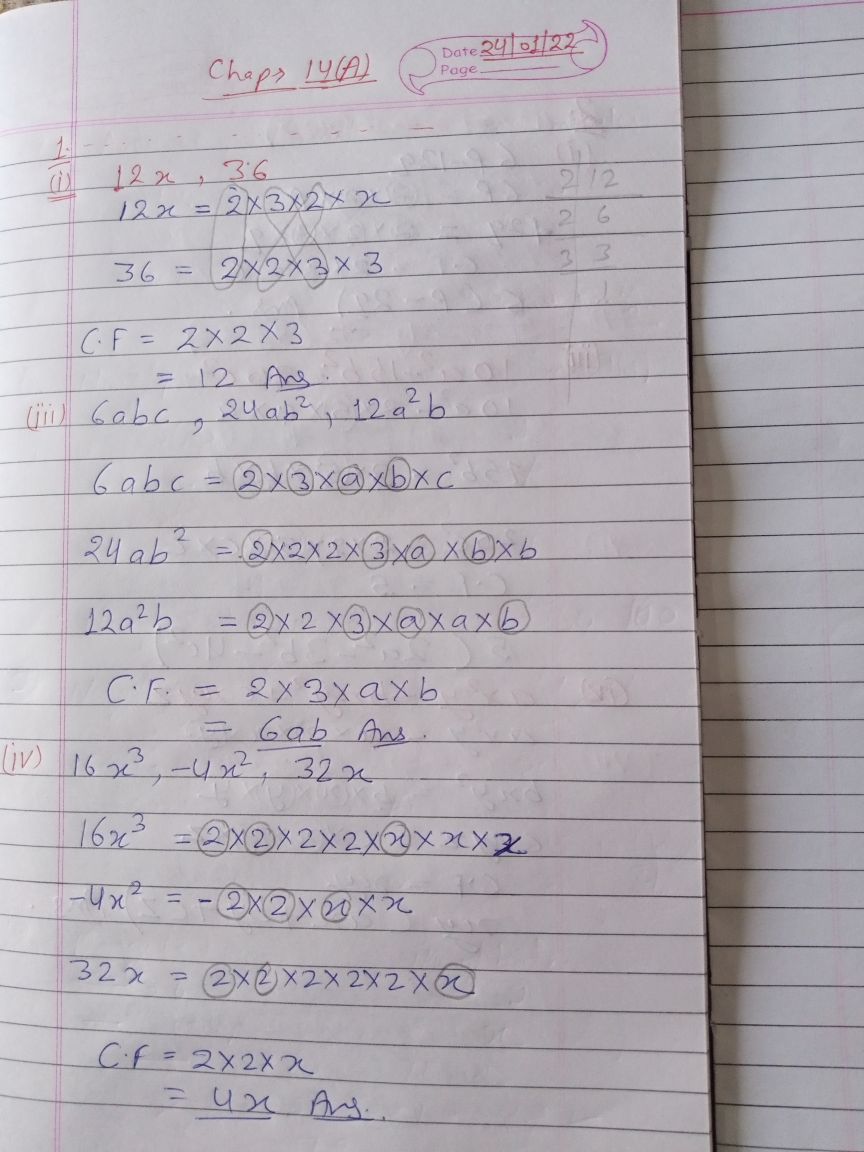 Chap> 14(A)
Date 24/01/22
Page
1.
(i) 12x , 36
12x = 2×3×2× x
36 = 2×2×3×3
C.F = 2×2×3
= 12 Ans.
(iii) 6abc , 24ab², 12a²b
6abc = 2×3×a×b×c
24ab² = 2×2×2×3×a×b×b
12a²b = 2×2×3×a×a×b
C.F. = 2×3×a×b
= 6ab Ans.
(iv) 16x³, -4x², 32x
16x³ = 2×2×2×2×x×x×x
-4x² = -2×2×x×x
32x = 2×2×2×2×2×x
C.F = 2×2×x
= 4x Ans.